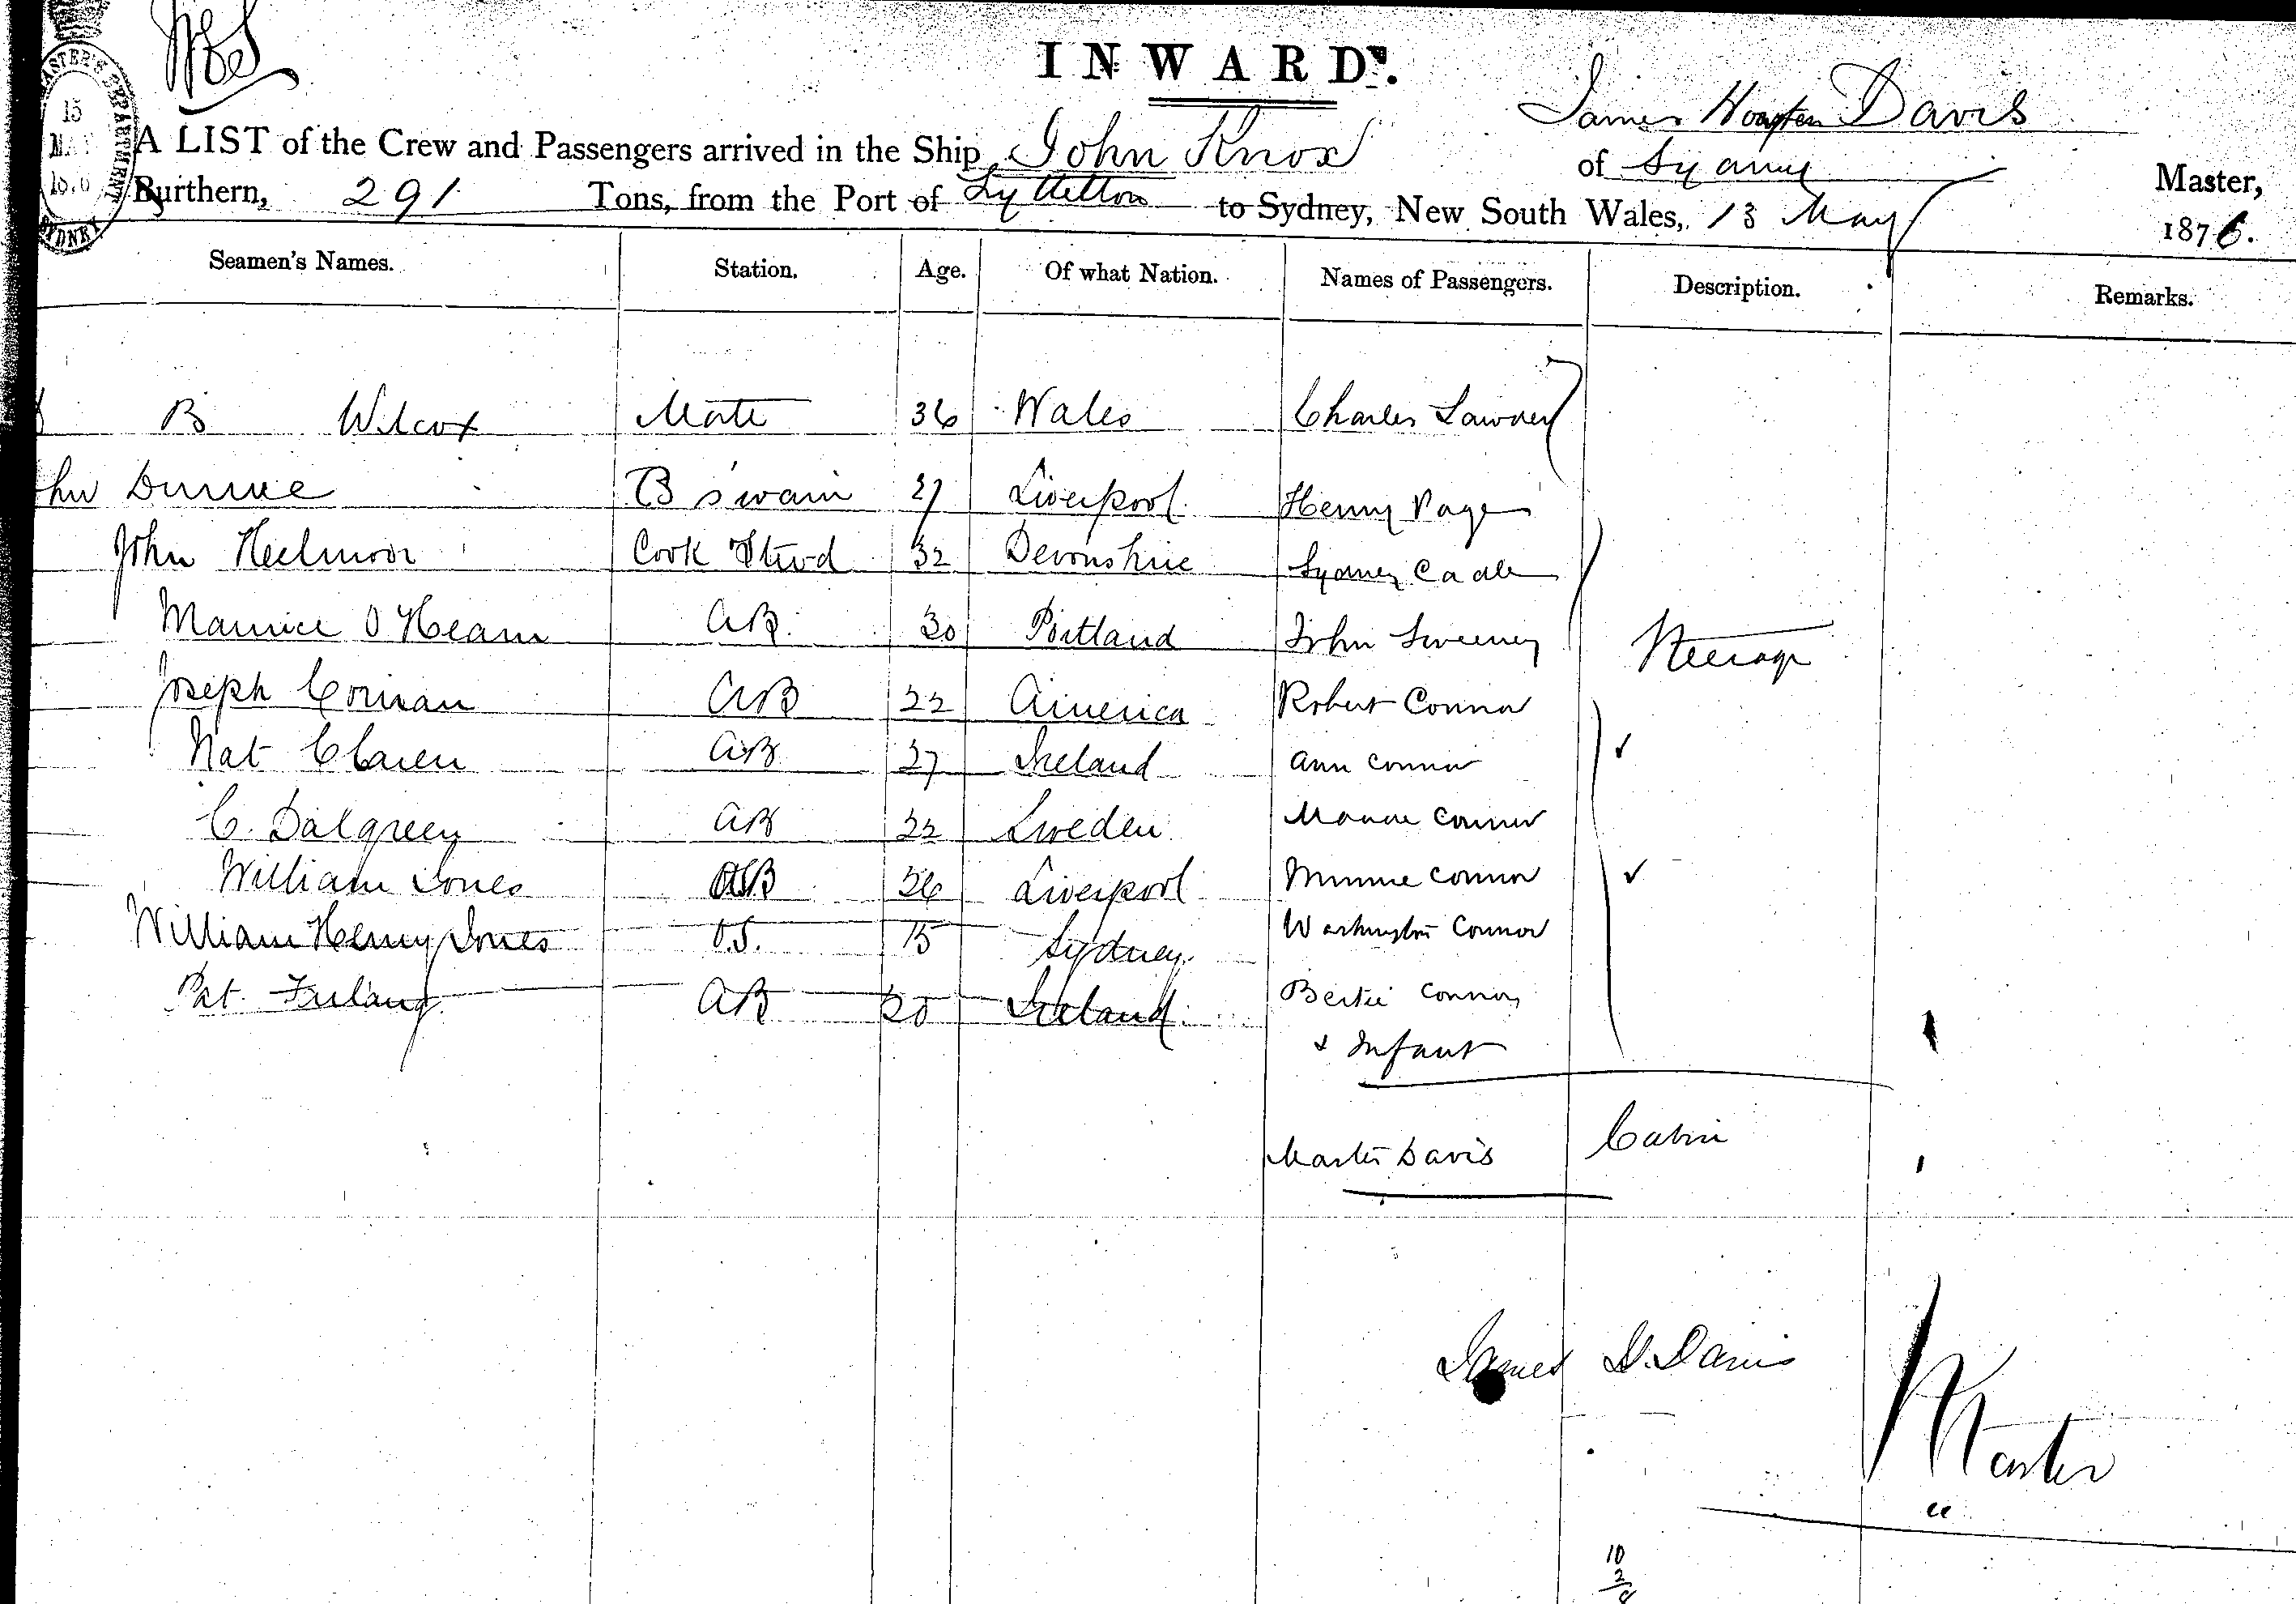 INWARD.
James Davis
A LIST of the Crew and Passengers arrived in the Ship John Knox of Sydney Master,
Burthern, 291 Tons, from the Port of Lyttelton to Sydney, New South Wales, 13 May 1876.
Seamen's Names. Station. Age. Of what Nation. Names of Passengers. Description. Remarks.
B Wilcox Mate 36 Wales Charles
B'swain 27 Liverpool Henry Page
John Cook Stwd 32 Devonshire Sydney
Maurice O'Hearn AB. 30 Portland John Sweeney Steerage
Joseph AB 22 America Robert Connor
Nat AB 27 Ireland Ann Connor
C. Dalgreen AB 22 Sweden Connor
William Jones AB 26 Liverpool Minnie Connor
William Henry Jones O.S. 15 Sydney. Washington Connor
Pat. AB 20 Ireland Bertie Connor
& Infant
Master Davis Cabin
James Davis
Master
10
2